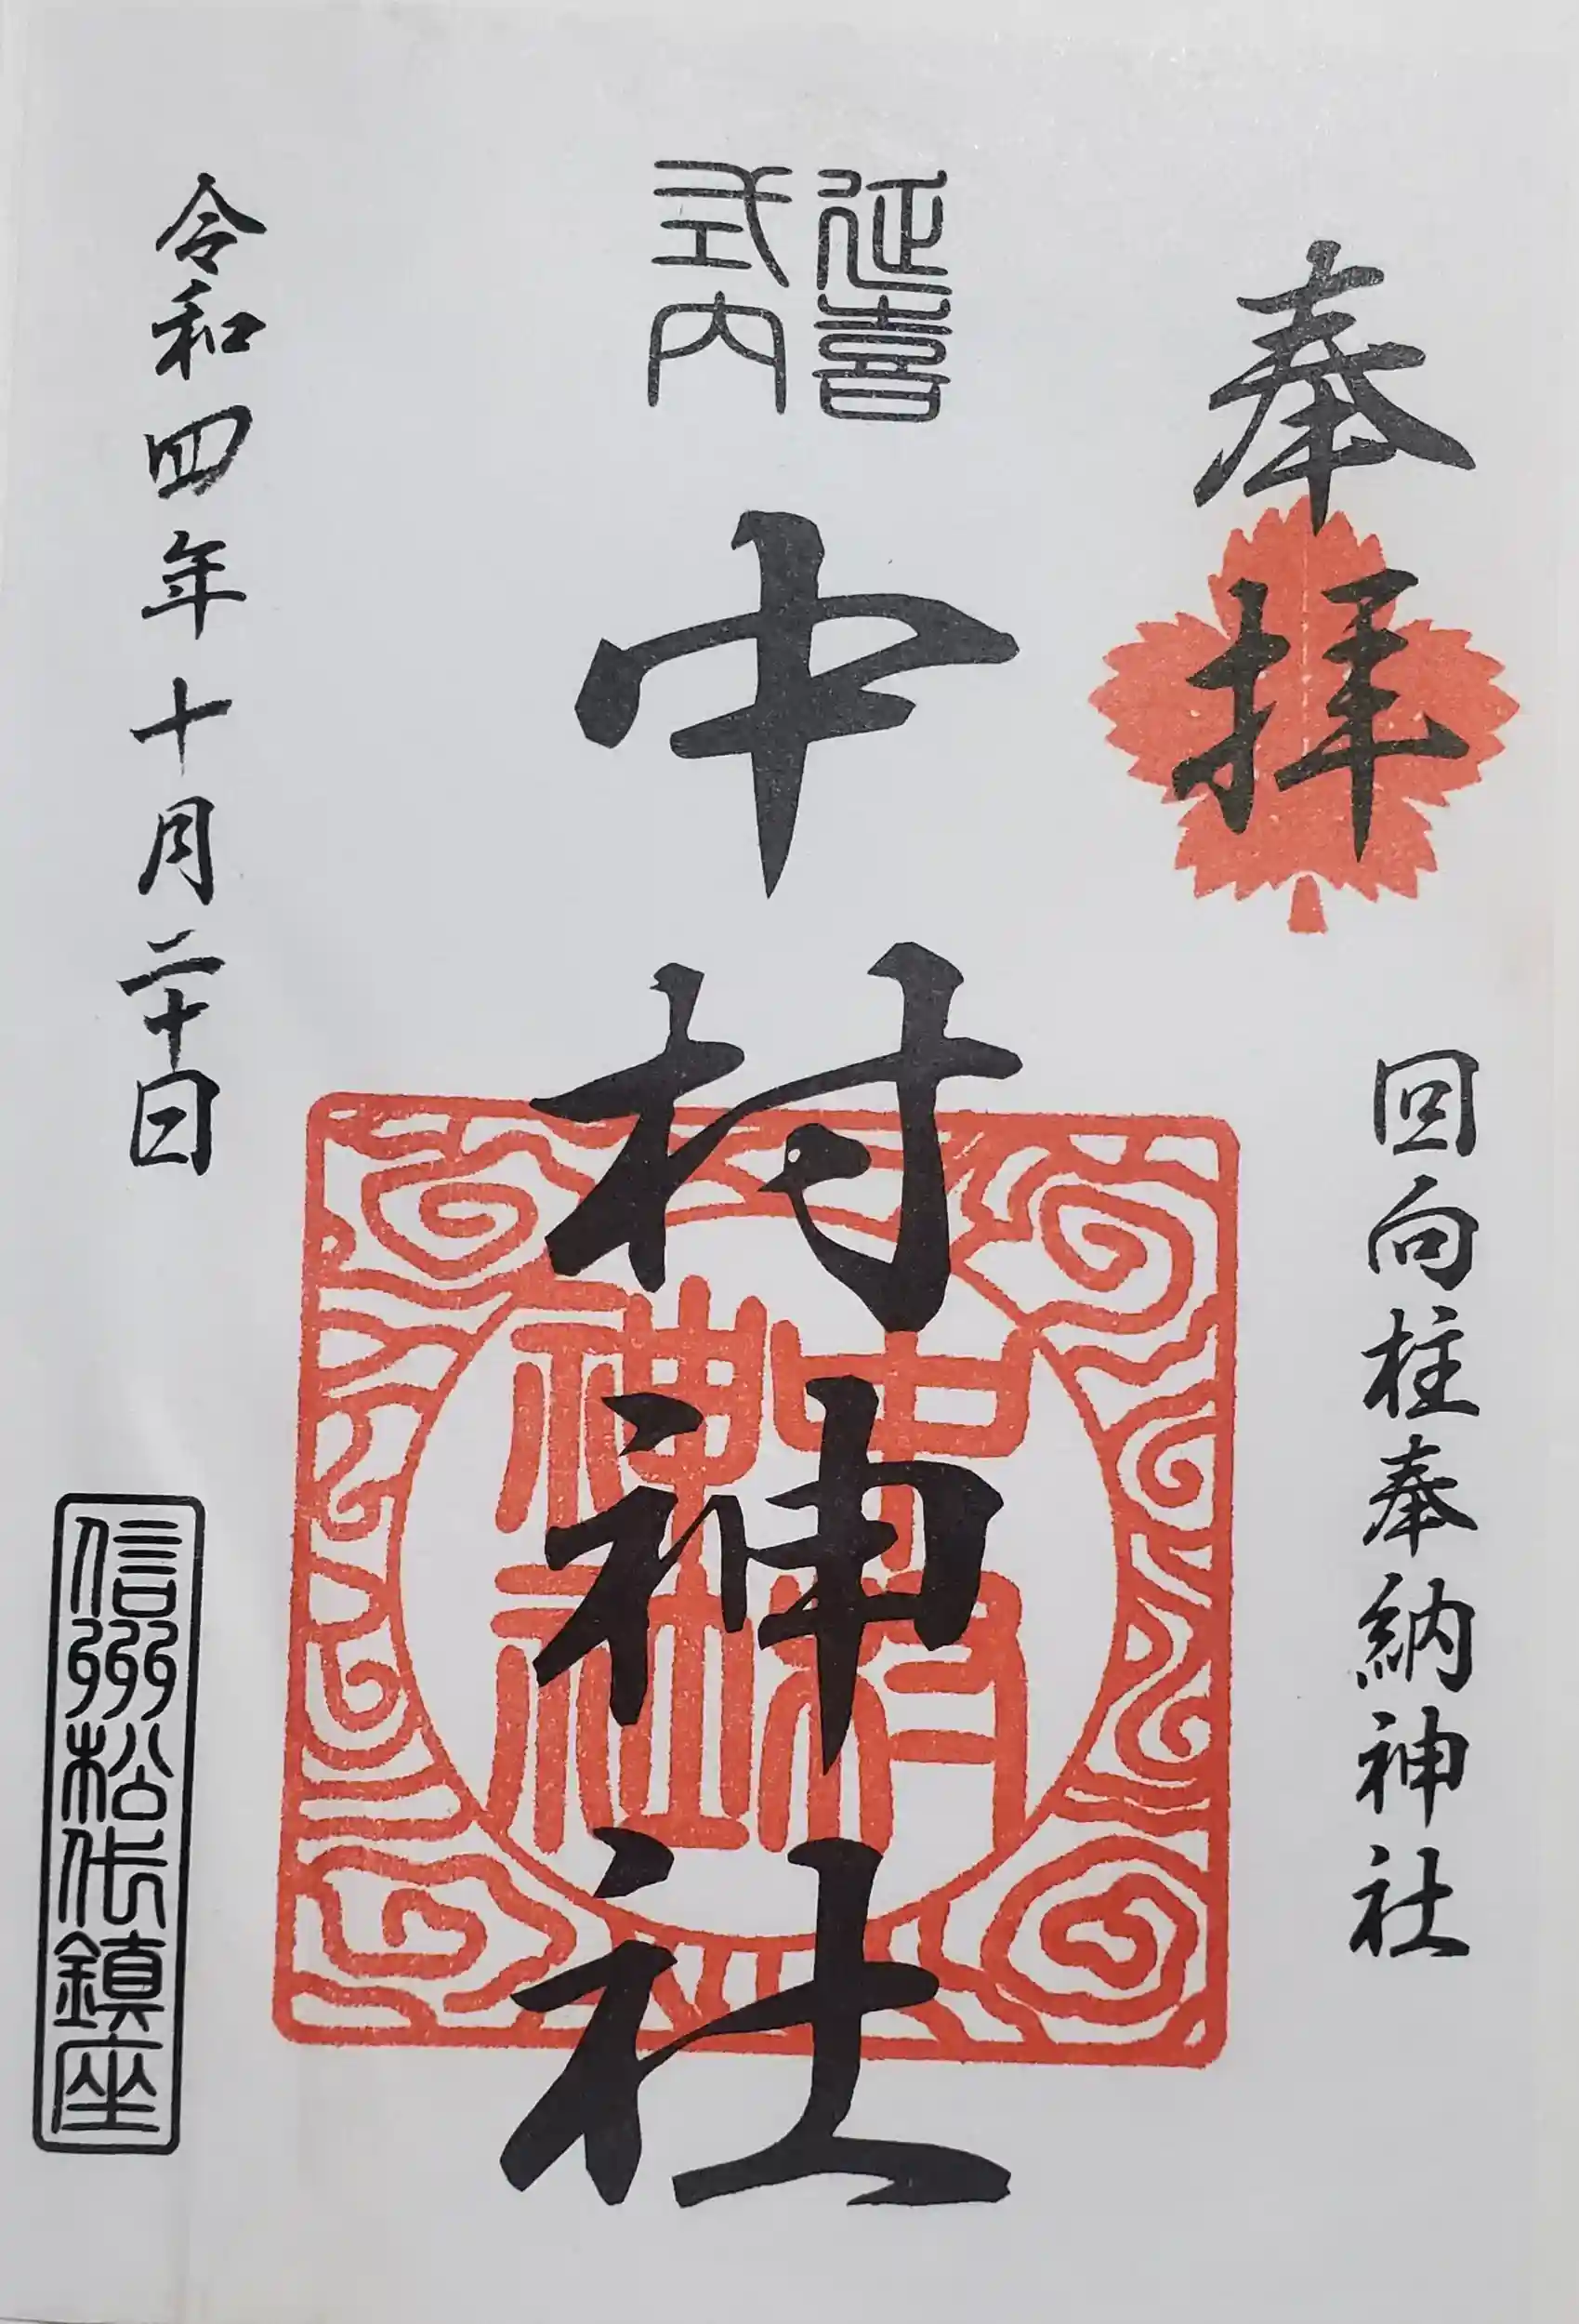 奉拝
回向柱奉納神社
延喜
式内
中村神社
中村
神社
令和四年十月二十日
信州松代鎮座